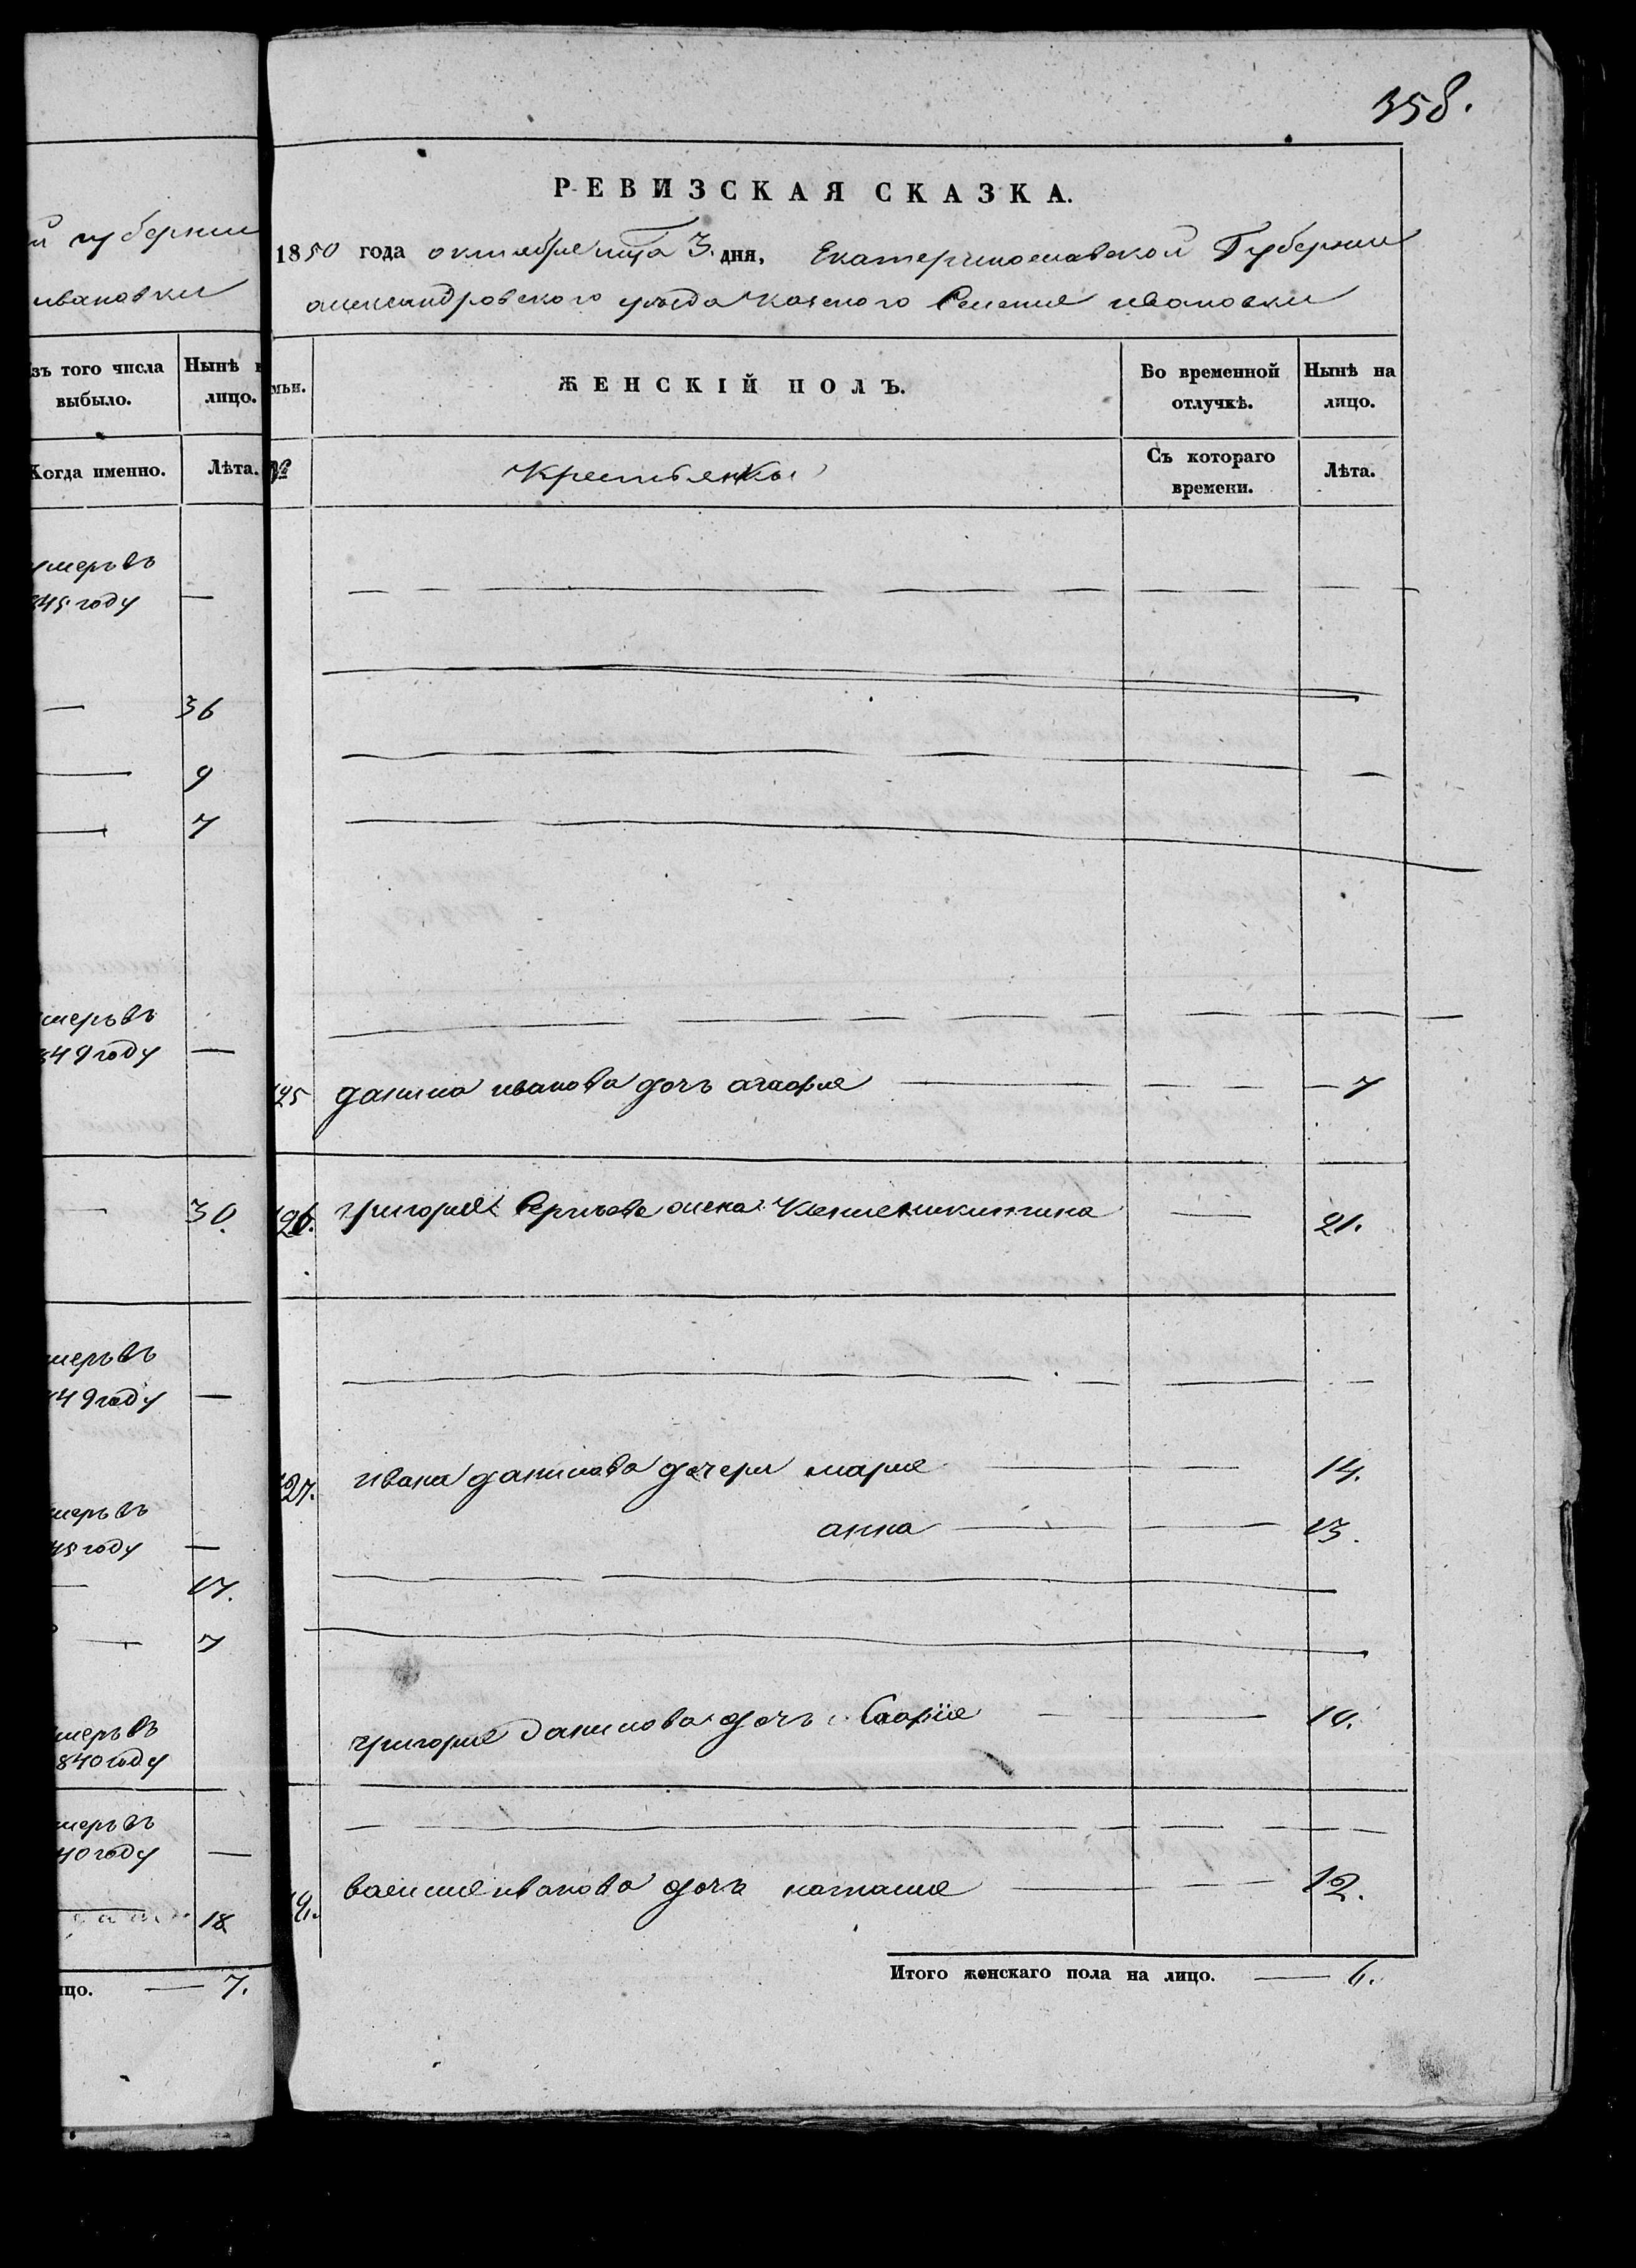 358.
й губерніи
ивановки
зъ того числа выбыло.
Нынѣ н лицо.
Когда именно.
Лѣта.
умеръ въ
845 году —
— 36
— 9
— 7
умеръ въ
849 году —
— 30.
умеръ въ
849 году —
умеръ въ
45 году —
— 17.
— 7
умеръ въ
840 году
умеръ въ
40 году —
18
ицо. — 7.
РЕВИЗСКАЯ СКАЗКА.
1850 года октября мца 3. дня, Екатеринославской Губерніи
александровского уезда казеного Селения ивановки
мьи.
ЖЕНСКІЙ ПОЛЪ.
Во временной отлучкѣ.
Нынѣ на лицо.
№
Крестьянки
Съ котораго времени.
Лѣта.
125 данила иванова дочь агафия — 7
126. григория Сергѣева жена Ксения никитина — 21.
127. ивана данилова дочери мария — 14.
анна — 13.
григория данилова дочь Софія — 10.
василия иванова дочь наталия — 12.
Итого женскаго пола на лицо. — 6.